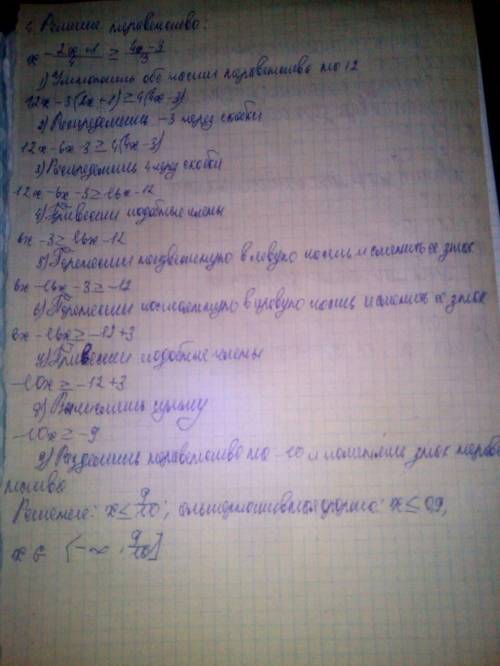 6. Решить неравенство:
x - 2x+1/4 ≥ 4x-3/3
1) Умножить обе части неравенства на 12
12x - 3(2x+1) ≥ 4(4x-3)
2) Распределить -3 через скобки
12x - 6x - 3 ≥ 4(4x-3)
3) Распределить 4 через скобки
12x - 6x - 3 ≥ 16x - 12
4) Привести подобные члены
6x - 3 ≥ 16x - 12
5) Перенести неизвестную в левую часть и сменить её знак
6x - 16x - 3 ≥ -12
6) Перенести постоянную в правую часть и сменить её знак
6x - 16x ≥ -12 + 3
7) Привести подобные члены
-10x ≥ -12 + 3
8) Вычислить сумму
-10x ≥ -9
9) Разделить неравенство на -10 и поменять знак нераве
нства
Решение: x ≤ 9/10; альтернативная форма: x ≤ 0,9,
x ∈ (-∞, 9/10]